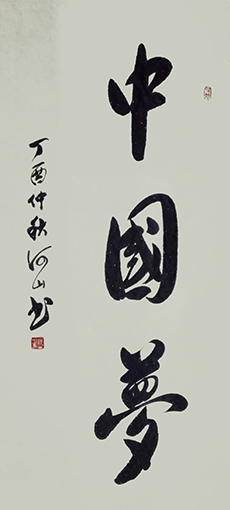 中國夢
丁酉仲秋河山書